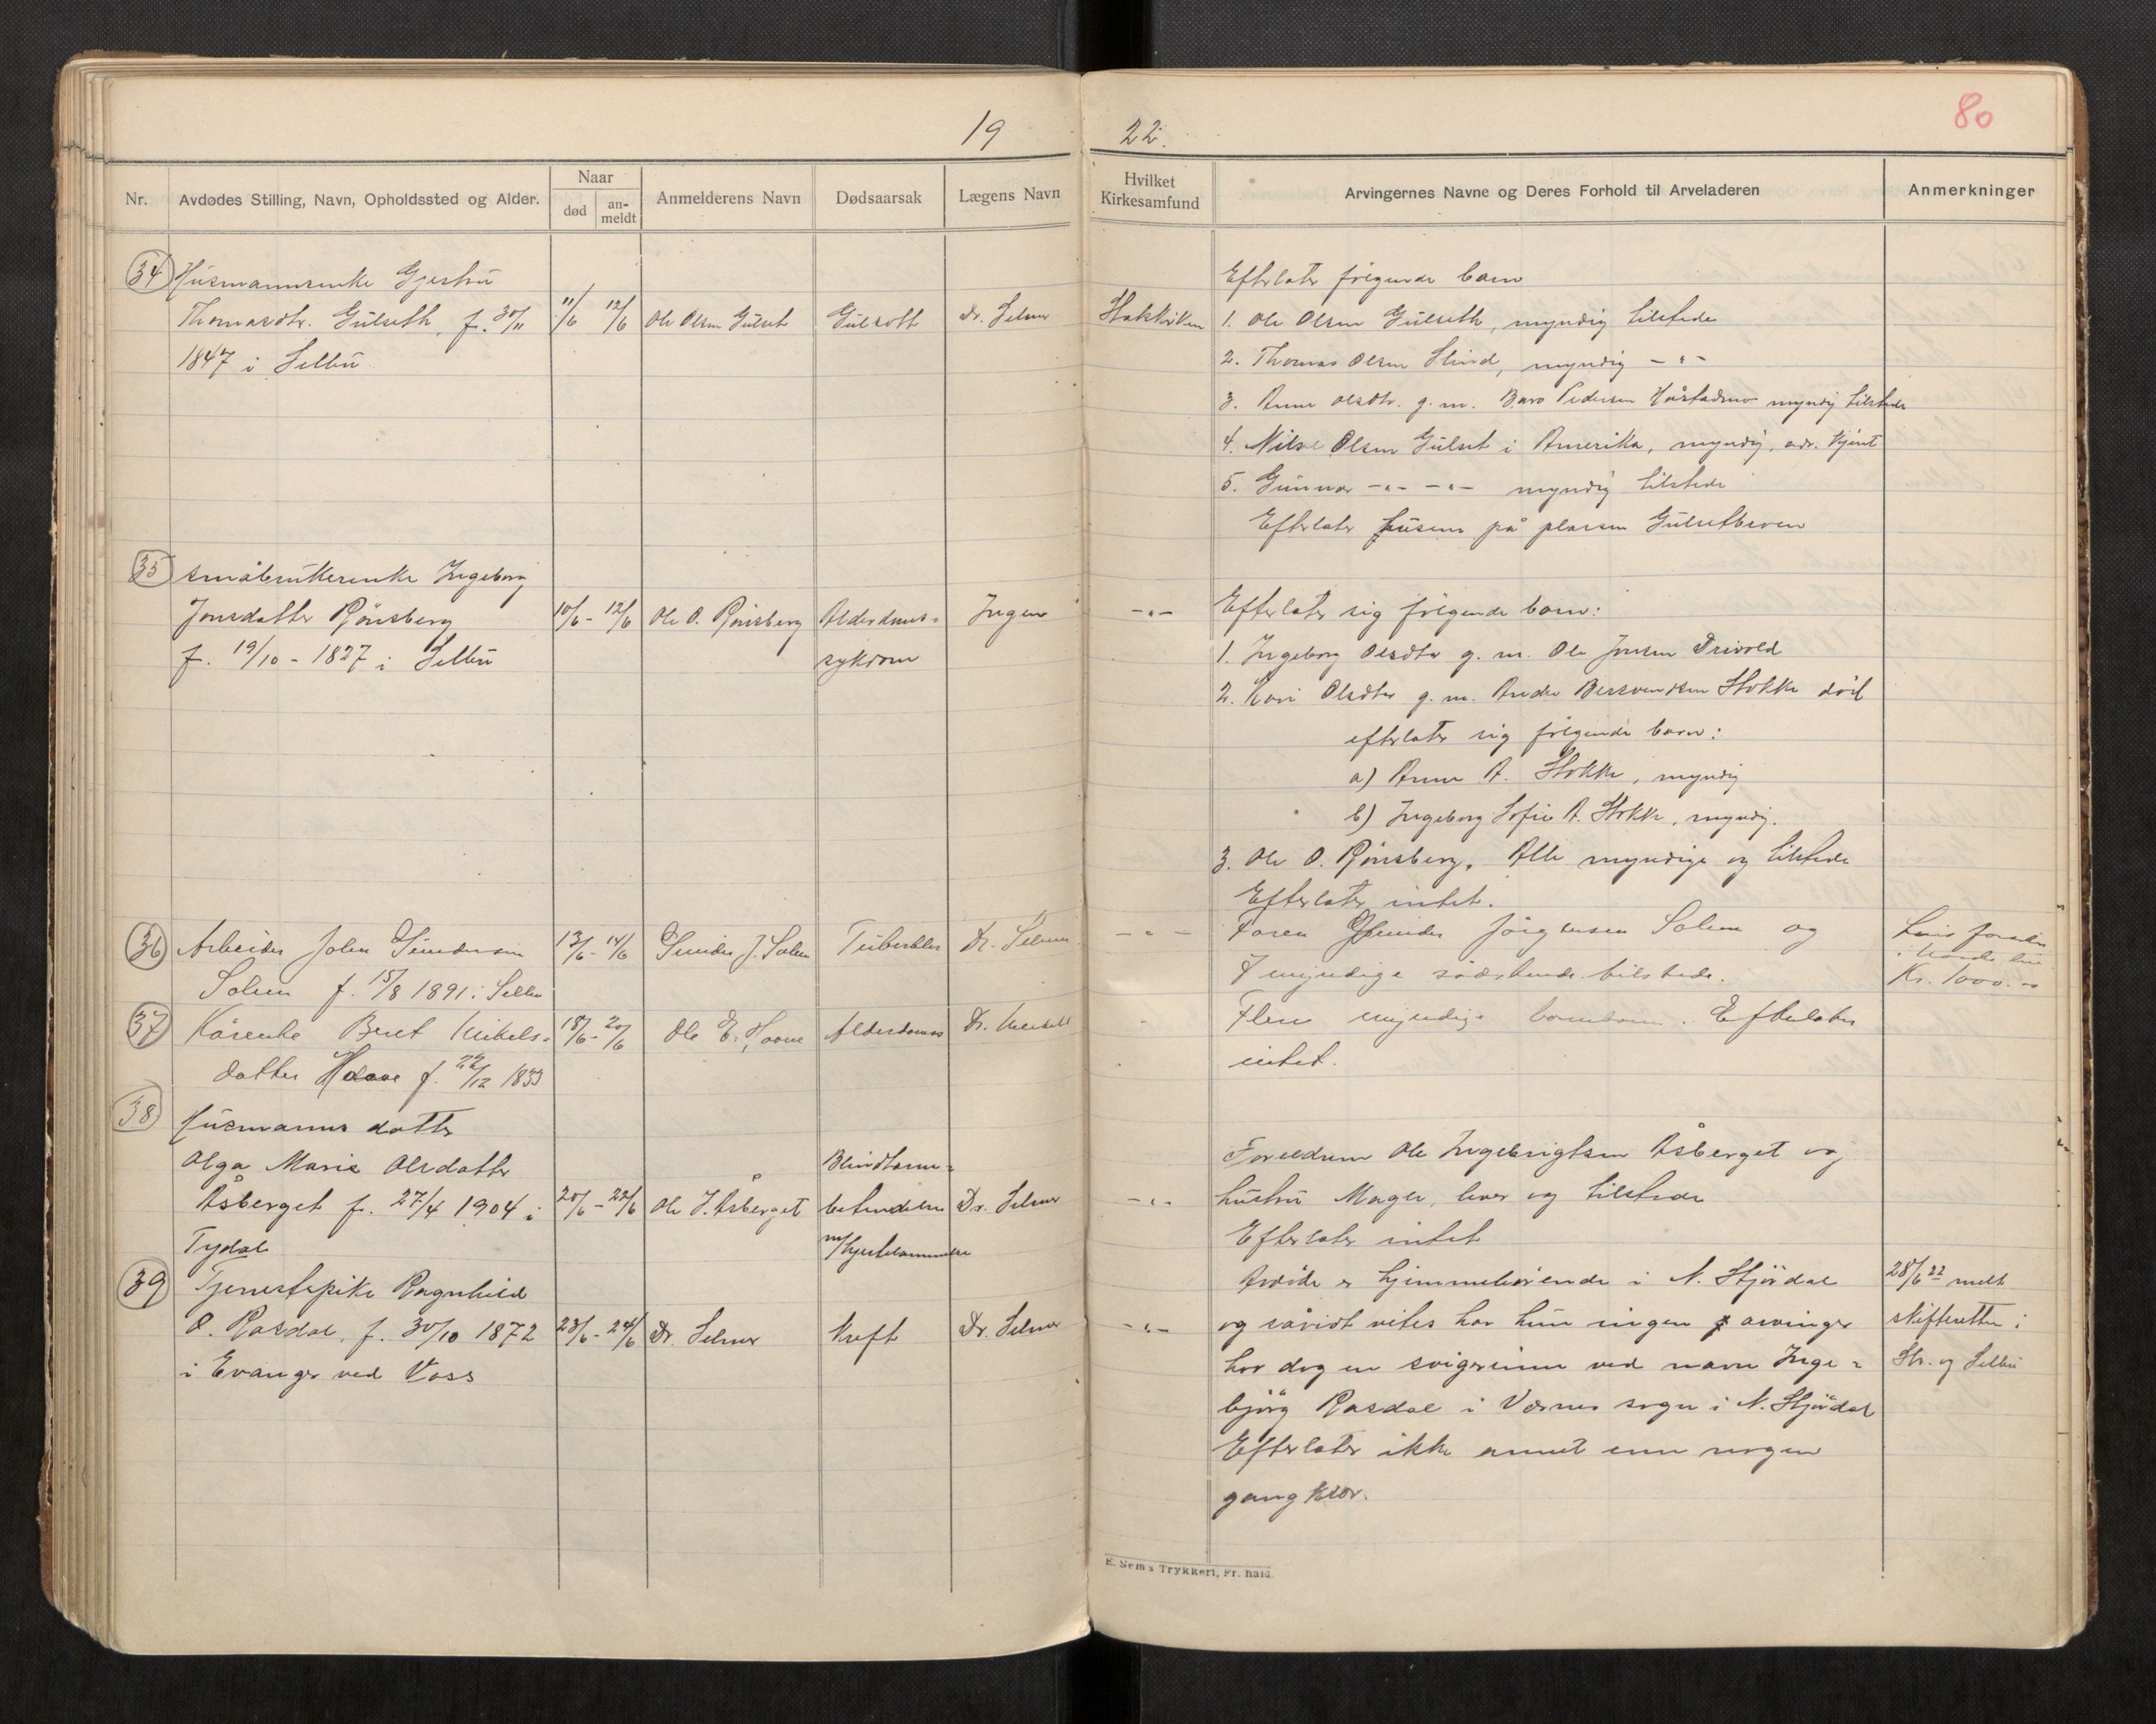 19
22.
80
Nr.
Avdødes Stilling, Navn, Opholdssted og Alder.
Naar
død
an-
meldt
Anmelderens Navn
Dødsaarsak
Lægens Navn
Hvilket
Kirkesamfund
Arvingernes Navne og Deres Forhold til Arveladeren
Anmerkninger
34
Husmannsenke Gjertru
Thomasdtr. Gulseth, f. 30/11
1847 i Selbu
11/6
12/6
Ole Olsen Gulset
Gulsott
Dr. Selmer
Statskirken
Efterlater følgende barn
1. Ole Olsen Gulseth, myndig tilstede
2. Thomas Olsen Slind, myndig - " -
3. Anne Olsdtr. g. m. Baro Pedersen myndig tilstede
4. Nils Olsen Gulset i Amerika, myndig, adr. kjent
5. Gunnar - " - - " - myndig tilstede
Efterlater husene på plassen
35
Småbrukerenke Ingeborg
Jonsdatter Rønsberg
f. 19/10 - 1827 i Selbu
10/6 - 12/6
Ole O. Rønsberg
Alderdoms-
sykdom
Ingen
- " -
Efterlater sig følgende barn:
1. Ingeborg Olsdtr g. m. Ole Jonsen Drivold
2. Kari Olsdtr g. m. Anders Bersvendsen Stokke død
efterlater sig følgende barn:
a) Anne A. Stokke, myndig
b) Ingeborg Sofie A. Stokke, myndig.
3. Ole O. Rønsberg. Alle myndige og tilstede
Efterlater intet.
36
Arbeider John Gundersen
Solem f. 15/8 1891 i Selbu
13/6 - 14/6
Gunder J. Solem
Tuberkler
Dr. Selmer
- " -
Faren Gunder Jørgensen Solem og
7 myndige søskende tilstede.
Kr. 1000.-
37
Kårenke Beret Mikels-
datter Hoave f. 22/12 1833
18/6 - 20/6
Ole E. Hoave
Alderdoms
Dr.
Flere myndige barnebarn. Efterlater
intet.
38
Husmanns datter
Olga Marie Olsdatter
Åsberget f. 27/4 1904 i
Tydal
20/6 - 22/6
Ole J. Åsberget
Blindtarm-
betendelse
m/hjertelammelse
Dr. Selmer
- " -
Foreldrene Ole Ingebrigtsen Åsberget og
hustru Magli, lever og tilstede
Efterlater intet
39
Tjenestepike Ragnhild
O. Rasdal, f. 30/10 1872
i Evanger ved Voss
23/6 - 24/6
Dr. Selmer
Kreft
Dr. Selmer
- " -
Avdøde er hjemmehørende i N. Stjørdal
og såvidt vites har hun ingen arvinger
har dog en svigerinne ved navn Inge-
bjørg Rasdal i Værnes sogn i N. Stjørdal
Efterlater ikke annet enn nogen
gangklær.
28/6 22 meldt
skifteretten i
Str. og Selbu
E. Sem's Trykkeri, Fr.hald.